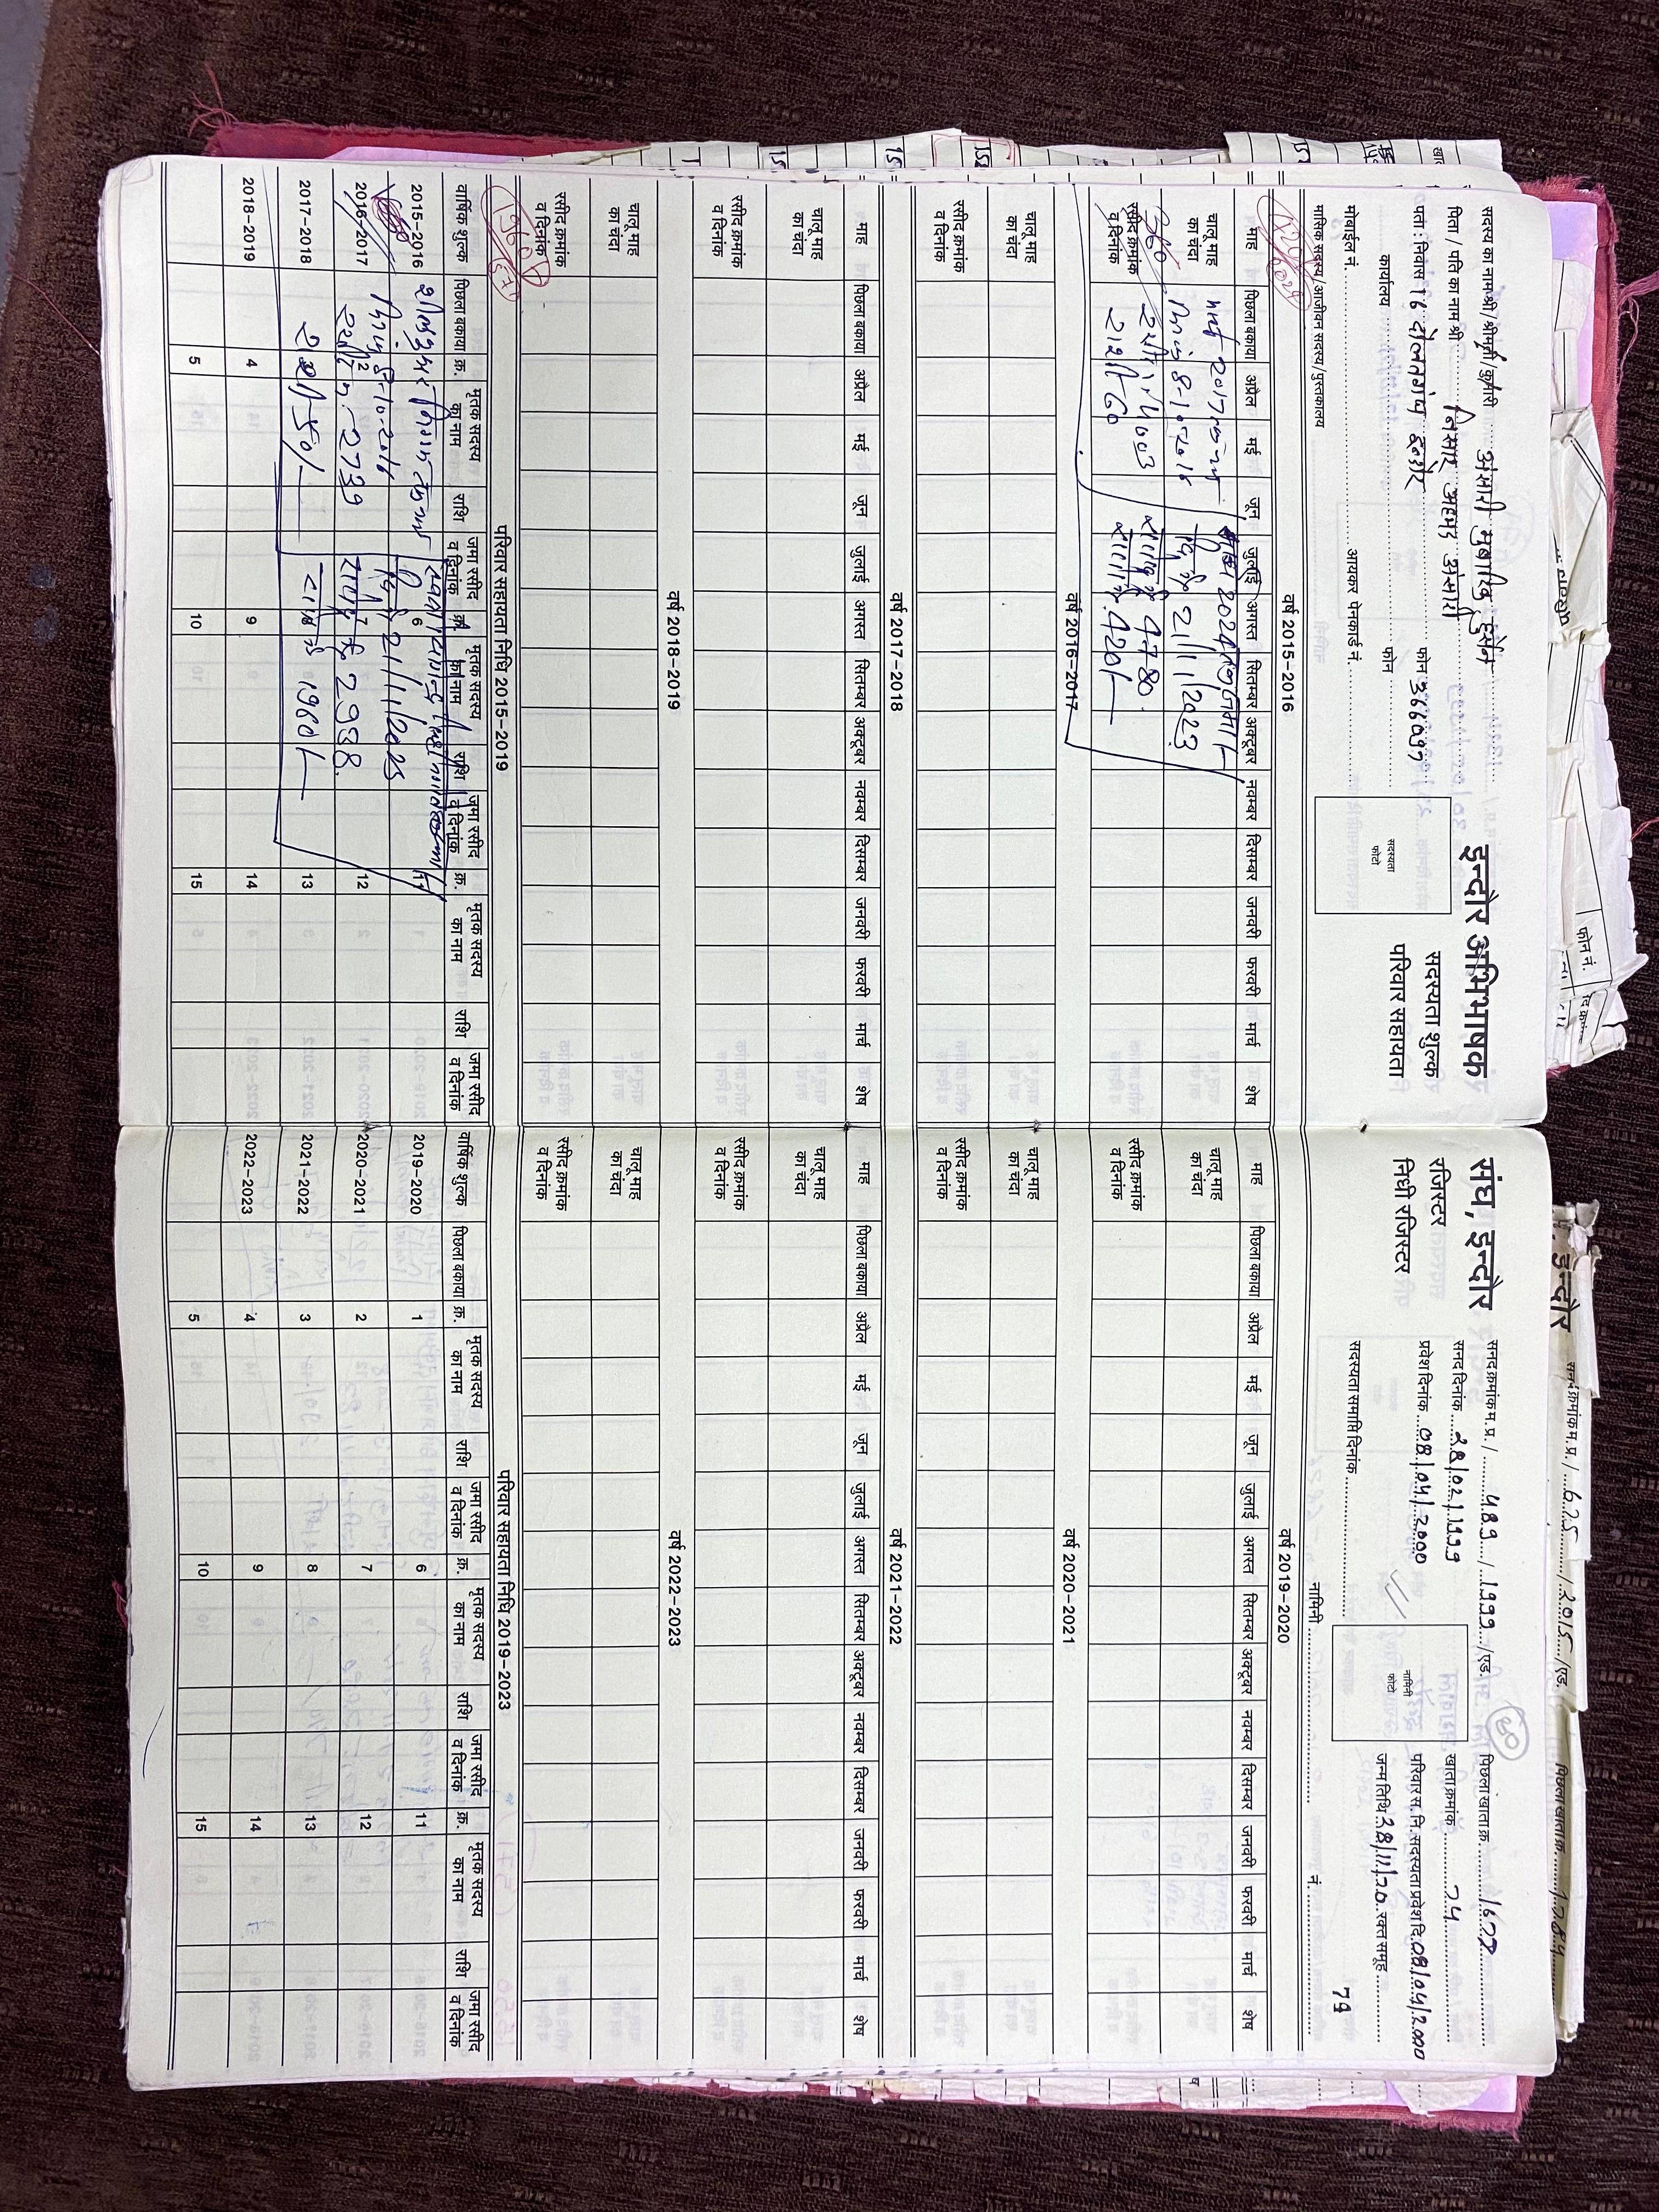 सदस्य का नाम श्री/श्रीमती/कुमारी अंसारी मुबारिक हुसैन
पिता / पति का नाम श्री निसार अहमद अंसारी
पता : निवास 16 दौलतगंज इन्दौर फोन 366097
कार्यालय फोन
मोबाईल नं. आयकर पेनकार्ड नं.
मासिक सदस्य/आजीवन सदस्य/पुस्तकालय
सदस्यता फोटो
इन्दौर अभिभाषक संघ, इन्दौर
सदस्यता शुल्क रजिस्टर
परिवार सहायता निधी रजिस्टर
सनद क्रमांक म.प्र. / 489 / 1999 /एड.
सनद दिनांक 28/02/1999
प्रवेश दिनांक 08/04/2000
सदस्यता समाप्ति दिनांक
नामिनी नं.
नामिनी फोटो
60
पिछला खाता क्र. 1677
खाता क्रमांक 74
परिवार स. नि. सदस्यता प्रवेश दि. 08/04/2000
जन्म तिथि 28/11/70 रक्त समूह
74
वर्ष 2015-2016
माह पिछला बकाया अप्रैल मई जून जुलाई अगस्त सितम्बर अक्टूबर नवम्बर दिसम्बर जनवरी फरवरी मार्च शेष
चालू माह का चंदा
रसीद क्रमांक व दिनांक
मार्च 2017
8-10-2016
4003
2024
21/11/2023
4780
420/-
वर्ष 2016-2017
चालू माह का चंदा
रसीद क्रमांक व दिनांक
वर्ष 2017-2018
माह पिछला बकाया अप्रैल मई जून जुलाई अगस्त सितम्बर अक्टूबर नवम्बर दिसम्बर जनवरी फरवरी मार्च शेष
चालू माह का चंदा
रसीद क्रमांक व दिनांक
वर्ष 2018-2019
चालू माह का चंदा
रसीद क्रमांक व दिनांक
परिवार सहायता निधि 2015-2019
वार्षिक शुल्क पिछला बकाया क्र. मृतक सदस्य का नाम राशि जमा रसीद व दिनांक क्र. मृतक सदस्य का नाम राशि जमा रसीद व दिनांक क्र. मृतक सदस्य का नाम राशि जमा रसीद व दिनांक
2015-2016 6 11
2016-2017 2 7 12
2017-2018 13
2018-2019 4 9 14
5 10 15
8-10-2016
2739
21/11/2023
2998
1960/-
वर्ष 2019-2020
माह पिछला बकाया अप्रैल मई जून जुलाई अगस्त सितम्बर अक्टूबर नवम्बर दिसम्बर जनवरी फरवरी मार्च शेष
चालू माह का चंदा
रसीद क्रमांक व दिनांक
वर्ष 2020-2021
चालू माह का चंदा
रसीद क्रमांक व दिनांक
वर्ष 2021-2022
माह पिछला बकाया अप्रैल मई जून जुलाई अगस्त सितम्बर अक्टूबर नवम्बर दिसम्बर जनवरी फरवरी मार्च शेष
चालू माह का चंदा
रसीद क्रमांक व दिनांक
वर्ष 2022-2023
चालू माह का चंदा
रसीद क्रमांक व दिनांक
परिवार सहायता निधि 2019-2023
वार्षिक शुल्क पिछला बकाया क्र. मृतक सदस्य का नाम राशि जमा रसीद व दिनांक क्र. मृतक सदस्य का नाम राशि जमा रसीद व दिनांक क्र. मृतक सदस्य का नाम राशि जमा रसीद व दिनांक
2019-2020 1 6 11
2020-2021 2 7 12
2021-2022 3 8 13
2022-2023 4 9 14
5 10 15